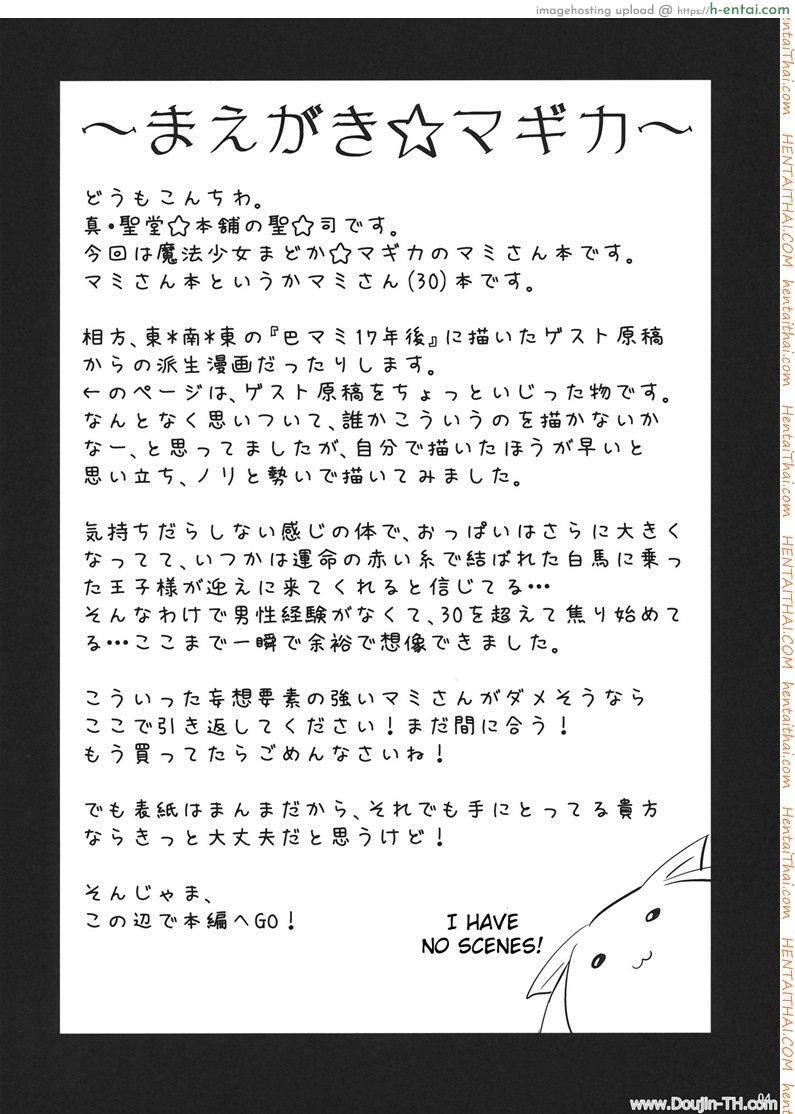 imagehosting upload @ https://h-entai.com
～まえがき☆マギカ～
どうもこんちわ。
真・聖堂☆本舗の聖☆司です。
今回は魔法少女まどか☆マギカのマミさん本です。
マミさん本というかマミさん(30)本です。
相方、東*南*東の『巴マミ17年後』に描いたゲスト原稿
からの派生漫画だったりします。
←のページは、ゲスト原稿をちょっといじった物です。
なんとなく思いついて、誰かこういうのを描かないか
なー、と思ってましたが、自分で描いたほうが早いと
思い立ち、ノリと勢いで描いてみました。
気持ちだらしない感じの体で、おっぱいはさらに大きく
なってて、いつかは運命の赤い糸で結ばれた白馬に乗っ
た王子様が迎えに来てくれると信じてる…
そんなわけで男性経験がなくて、30を超えて焦り始めて
る…ここまで一瞬で余裕で想像できました。
こういった妄想要素の強いマミさんがダメそうなら
ここで引き返してください！まだ間に合う！
もう買ってたらごめんなさいね！
でも表紙はまんまだから、それでも手にとってる貴方
ならきっと大丈夫だと思うけど！
そんじゃま、
この辺で本編へGO！
I HAVE
NO SCENES!
04
www.Doujin-TH.com
entaiThai.com HENTAITHAI.COM hentaithai.com HentaiThai.com HENTAITHAI.COM hentaithai.com HentaiThai.com HENTAITHAI.COM